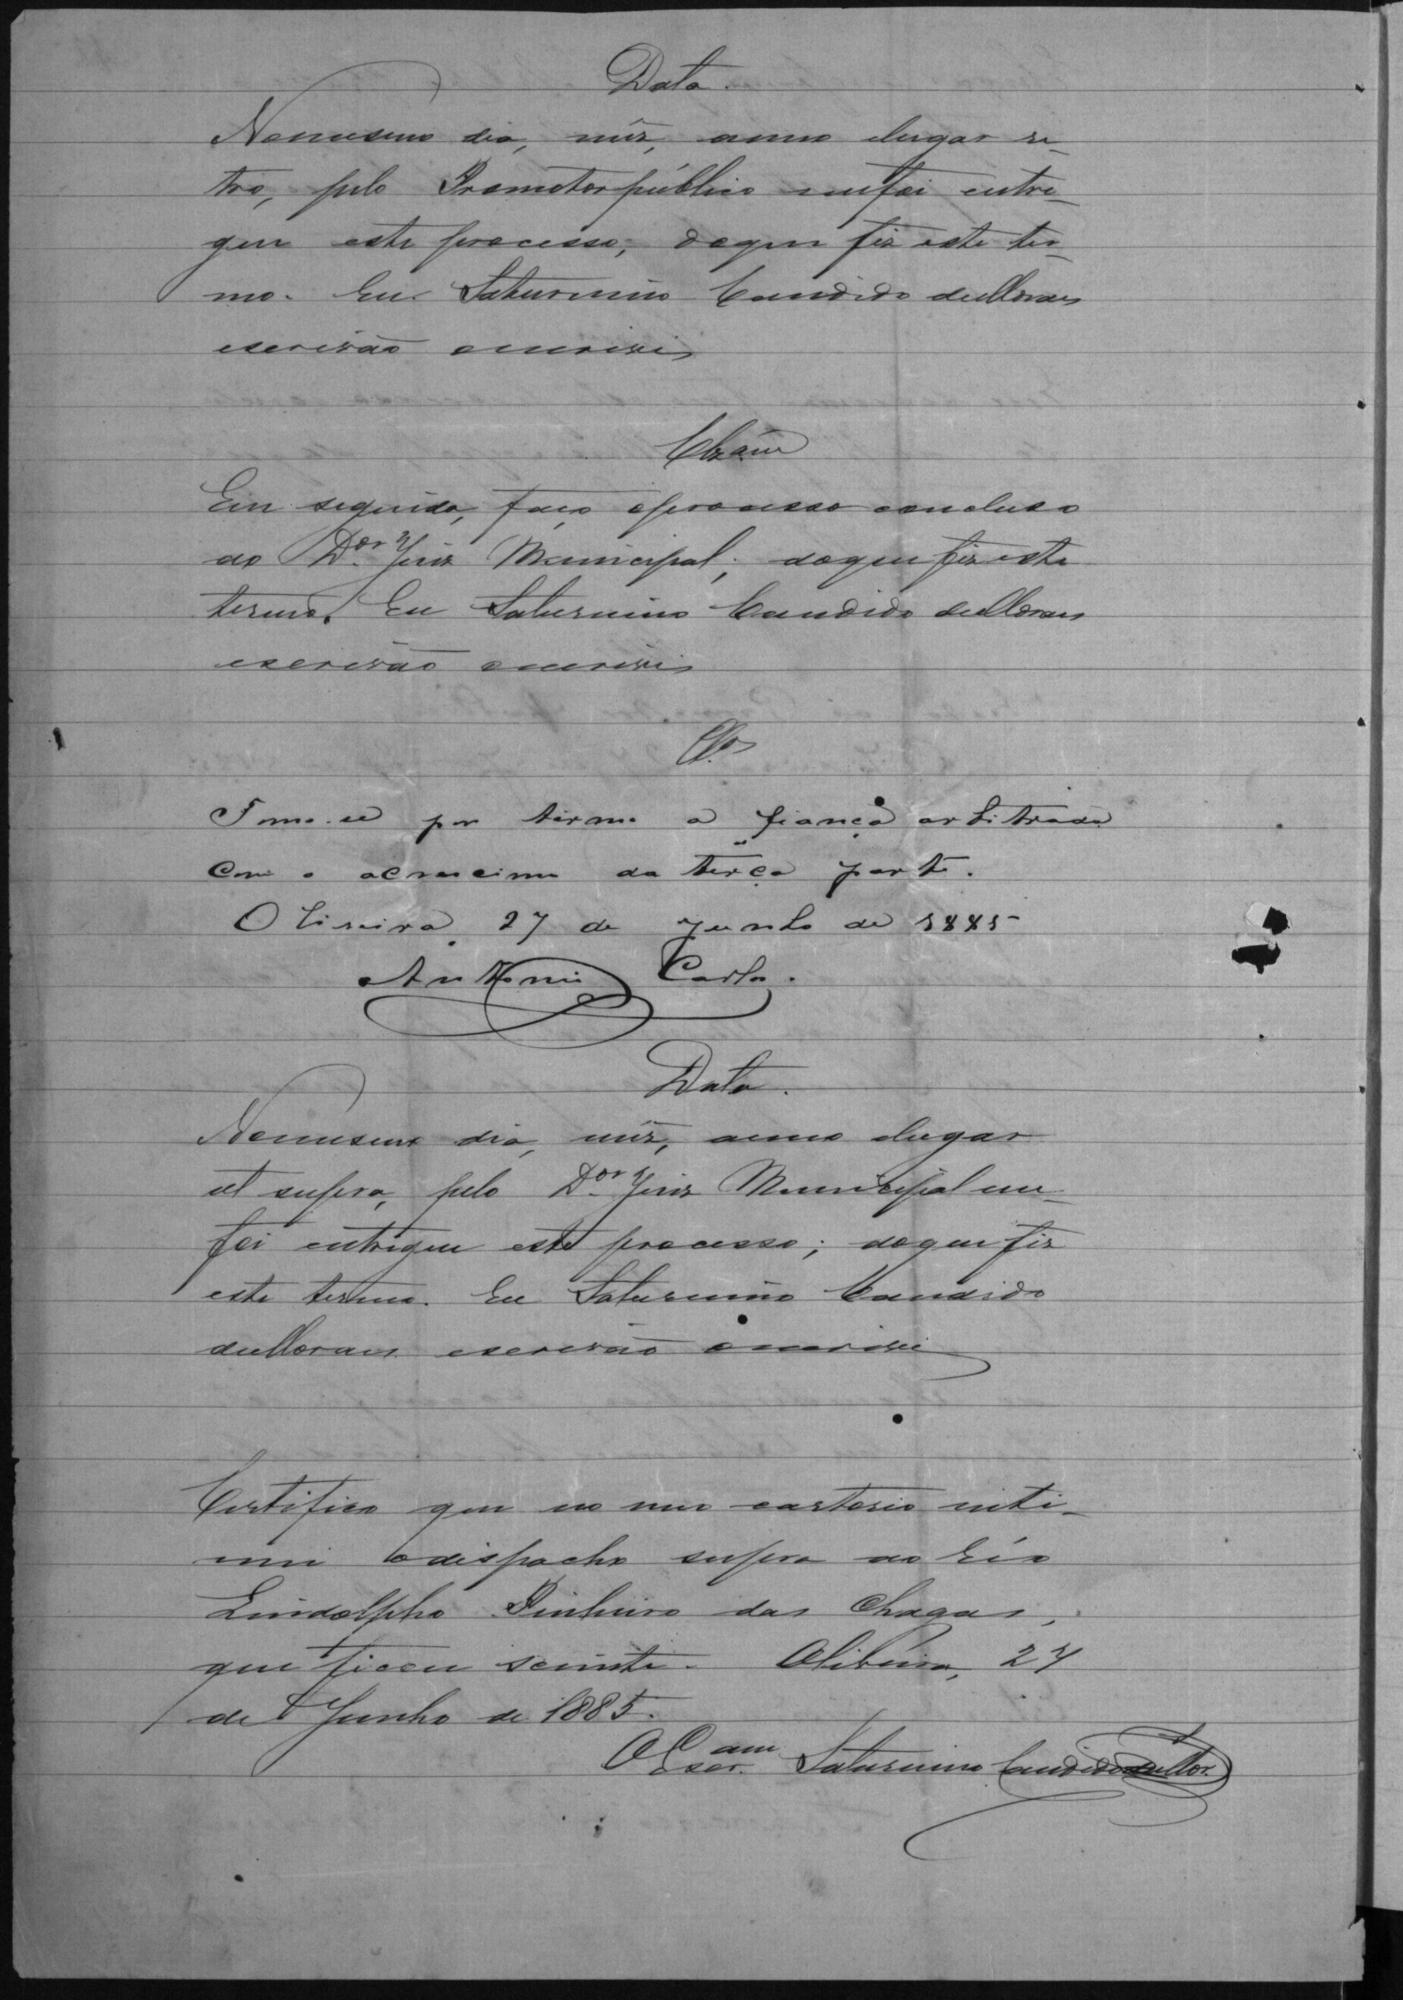 Data.
No mesmo dia, mêz, anno e lugar re-
tro, pelo Promotor público me foi entre-
gue este processo; do que fiz este ter-
mo. Eu Saturnino Candido de Moraes
escrivão o escrivi
Clzam
Em seguida, faço o processo concluso
ao Dor Juiz Municipal; do que fiz este
termo. Eu Saturnino Candido de Moraes
escrivão o escrivi
Clos
Tome-se por termo a fiança arbitrada
com o acrescimo da terça parte.
Oliveira, 27 de Junho de 1885
Antonio Carlos.
Data.
No mesmo dia, mêz, anno e lugar
ut supra, pelo Dor Juiz Municipal me
foi entregue este processo; do que fiz
este termo. Eu Saturnino Candido
de Moraes escrivão o escrivi
Certifico que no meu cartorio inti-
mei o dispacho supra ao Réo
Lindolpho Pinheiro das Chagas,
que ficou sciente. Oliveira, 27
de Junho de 1885.
O Escr.am Saturnino Candido de Mor.